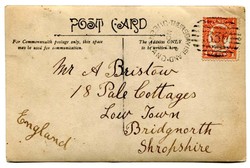 POST CARD
For Commonwealth postage only, this space may be used for communication.
The Address ONLY to be written here.
Mr A Bristow
18 Pale Cottages
Low Town
Bridgnorth
Shropshire
England